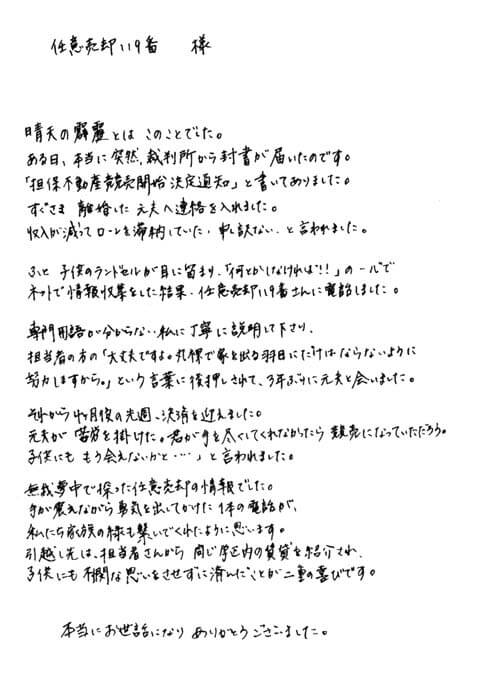 任意売却119番 様
晴天の霹靂とは このことでした。
ある日、本当に突然、裁判所から封書が届いたのです。
「担保不動産競売開始決定通知」と書いてありました。
すぐさま 離婚した 元夫へ連絡を入れました。
収入が減ってローンを滞納していた、申し訳ない、と言われました。
ふと 子供のランドセルが目に留まり、「何とかしなければ!!」の一心で
ネットで情報収集をした結果、任意売却119番さんに電話しました。
専門用語が分からない私に丁寧に説明して下さり、
担当者の方の「大丈夫ですよ。丸裸で家を出る羽目にだけはならないように
努力しますから。」という言葉に後押しされて、3年ぶりに元夫と会いました。
それから4ヶ月後の先週、決済を迎えました。
元夫が「苦労を掛けた。君が手を尽くしてくれなかったら 競売になっていただろう。
子供にも もう会えないかと・・・」と言われました。
無我夢中で探った任意売却の情報でした。
手が震えながら勇気を出してかけた 1本の電話が、
私たち家族の縁も繋いでくれたように思います。
引越し先は、担当者さんから 同じ学区内の賃貸を紹介され、
子供にも不憫な思いをさせずに済んだことが二重の喜びです。
本当にお世話になり ありがとうございました。